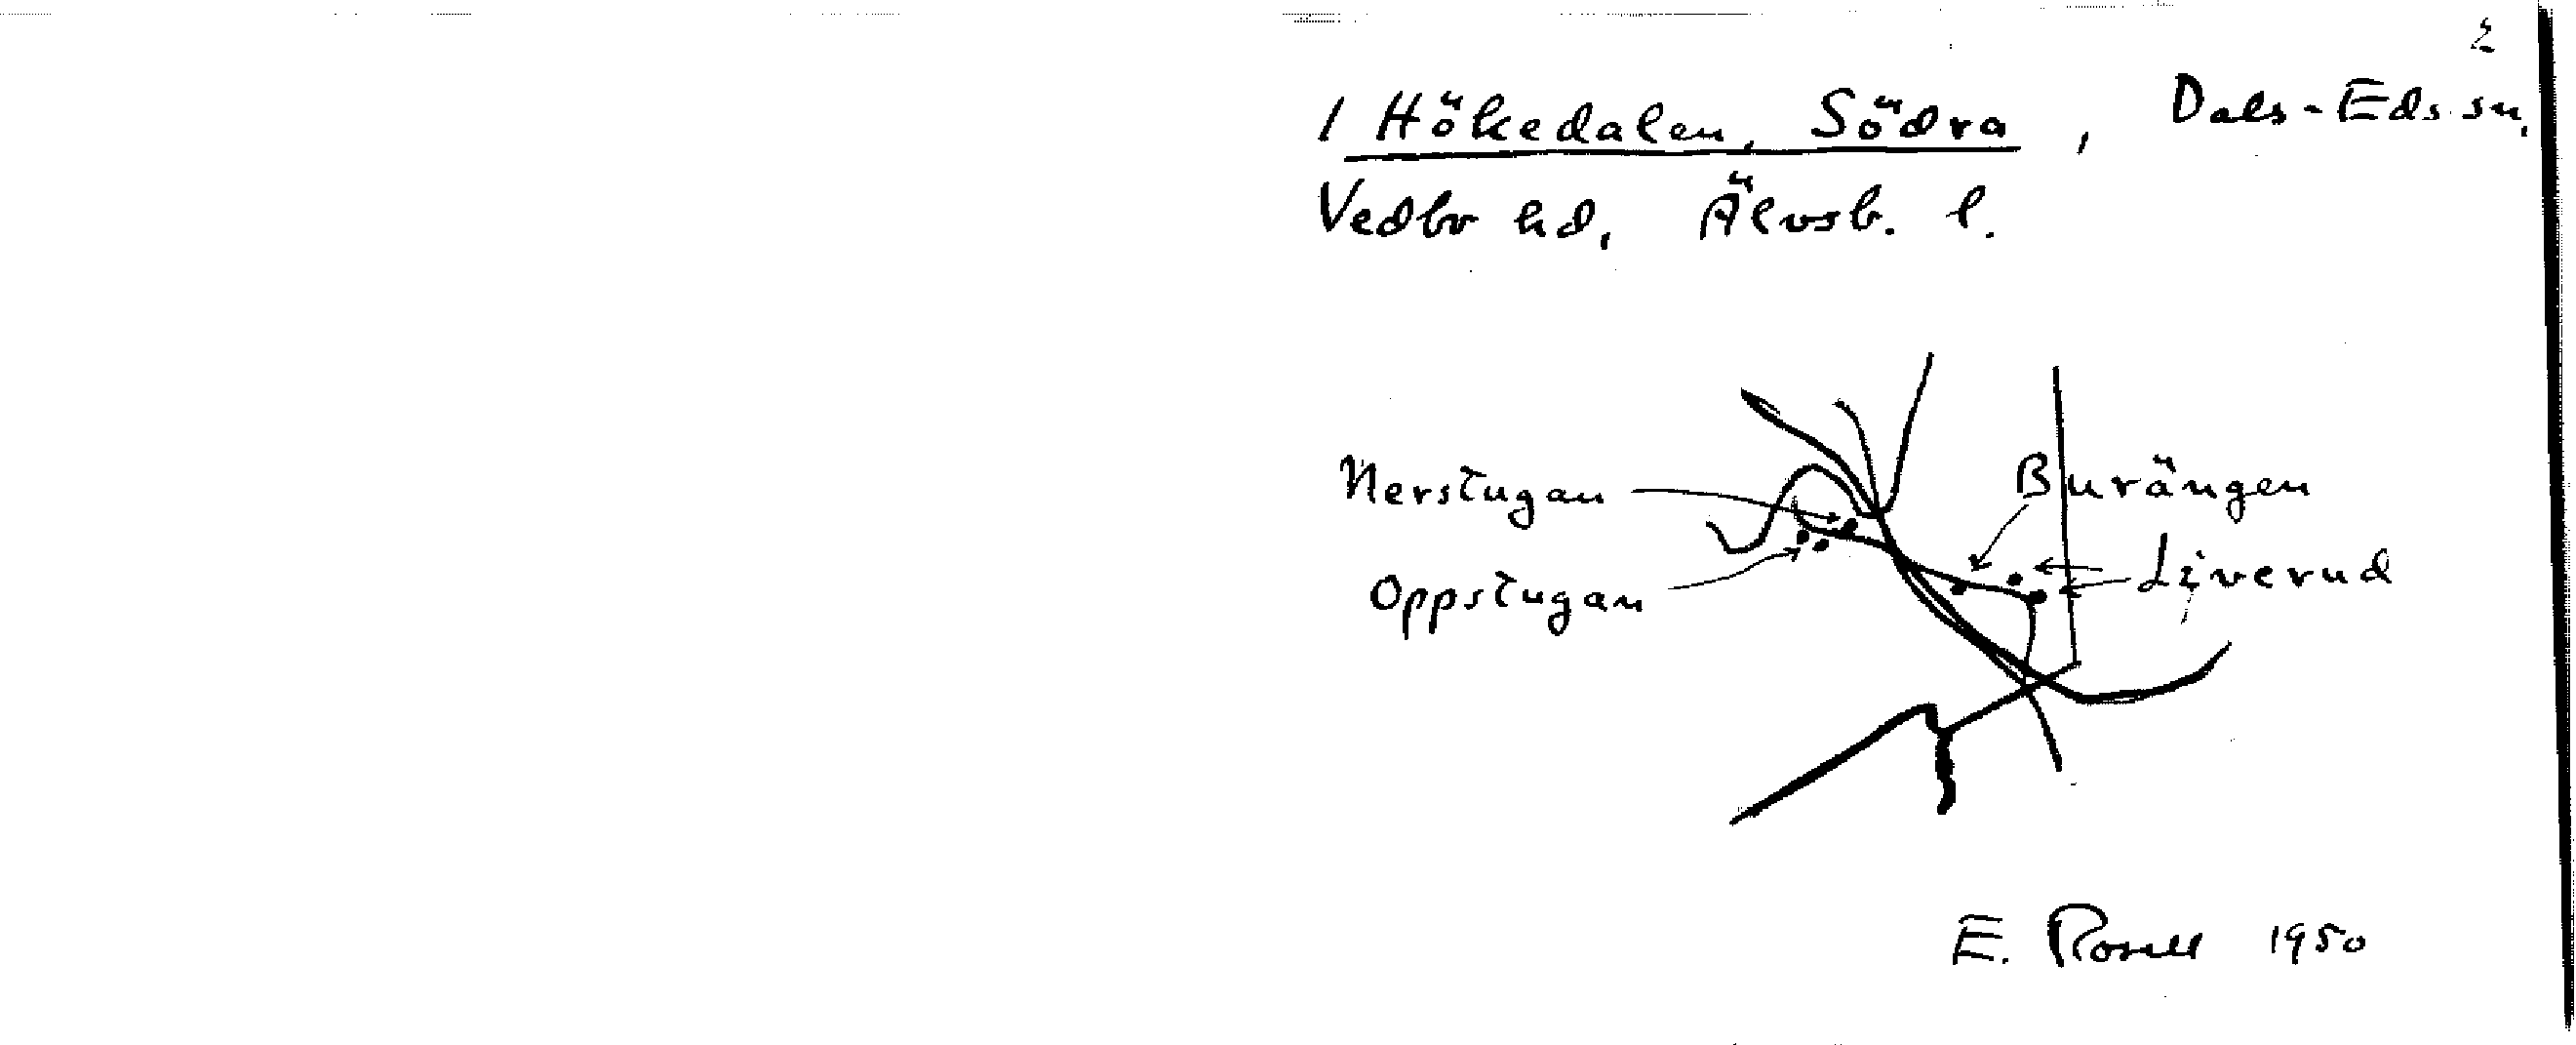 2
1 Hökedalen, Södra, Dals-Eds sn,
Vedbo hd, Älvsb. l.
Nerstugan
Burängen
Liverud
Oppstugan
E. Rosell 1950